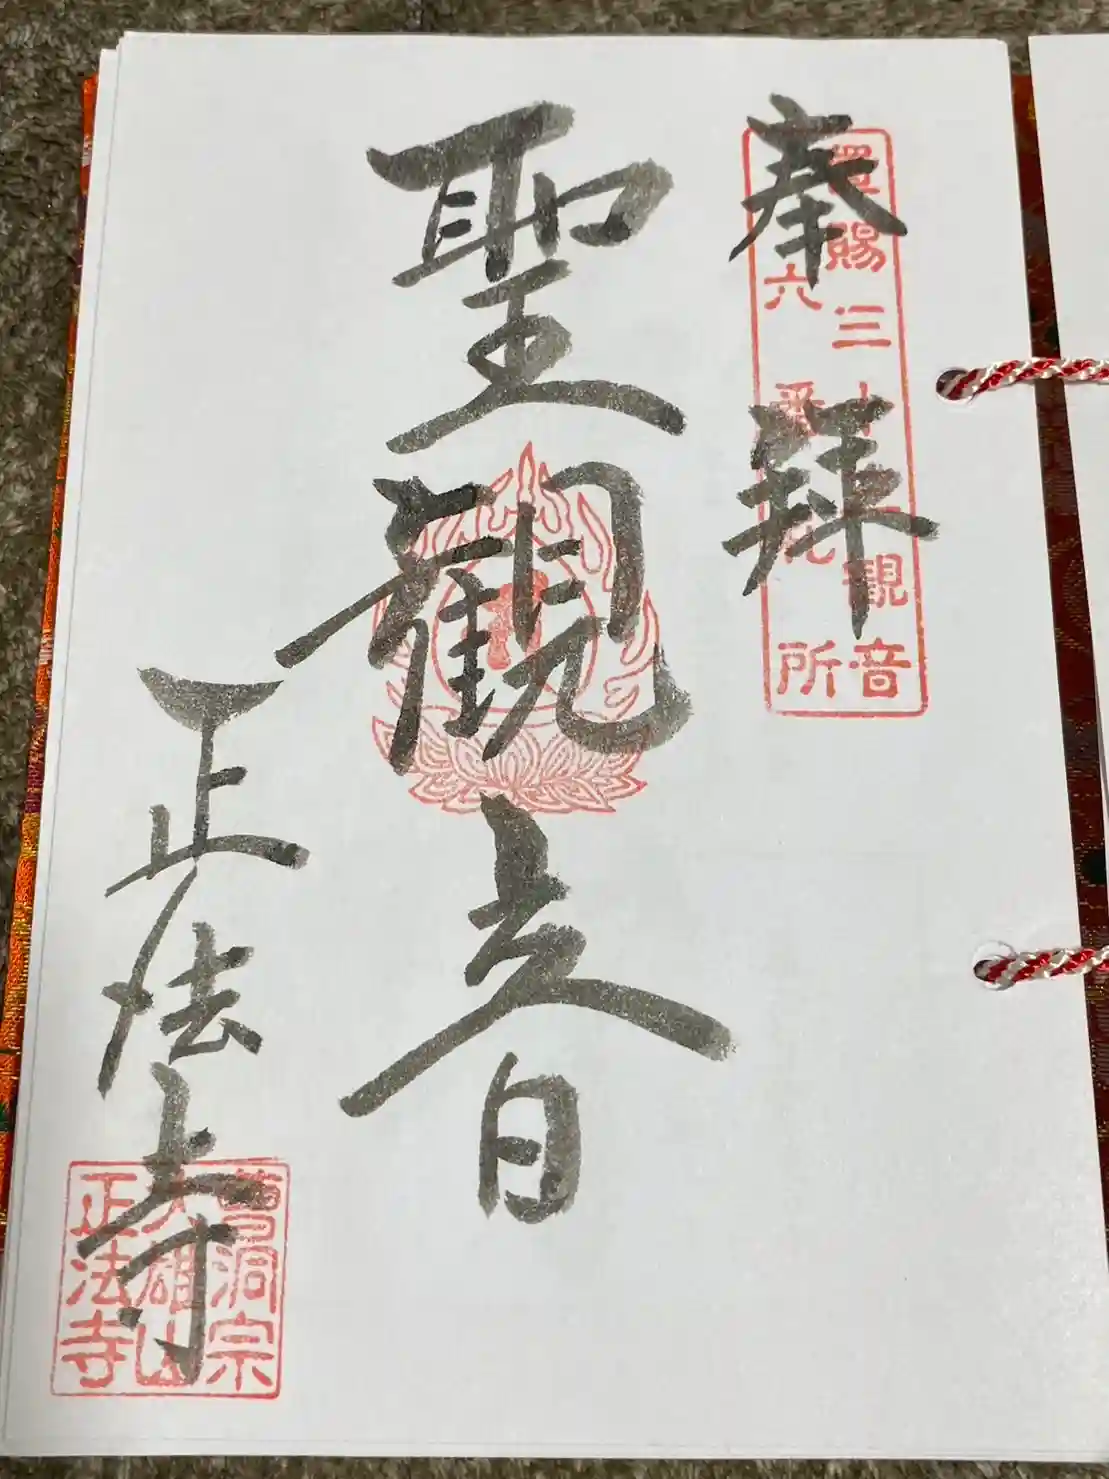 奉拝
置賜三十三観音
六番札所
聖観音
正法寺
曹洞宗
大雄山
正法寺